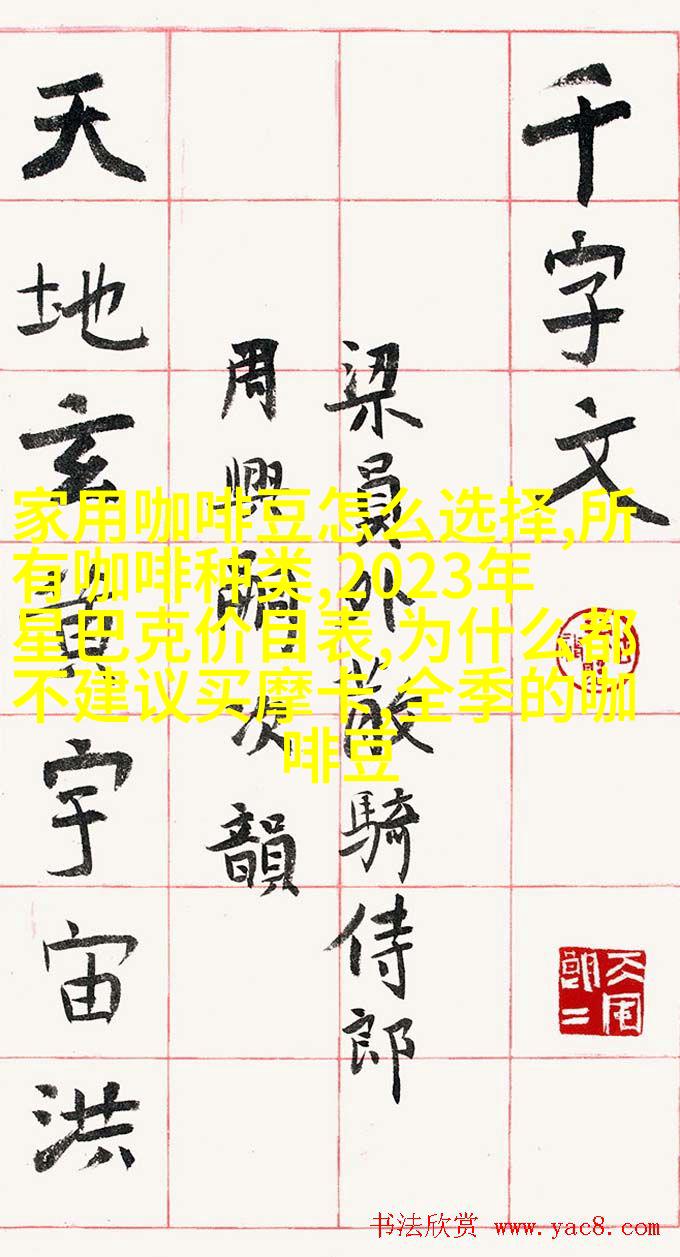 千字文
梁員外散騎侍郎
周興嗣次韻
天地玄黄宇宙洪
家用咖啡豆怎么选择,所
有咖啡种类,2023年
星巴克价目表,为什么都
不建议买摩卡,全季的咖
啡豆
书法欣赏 www.yac8.com